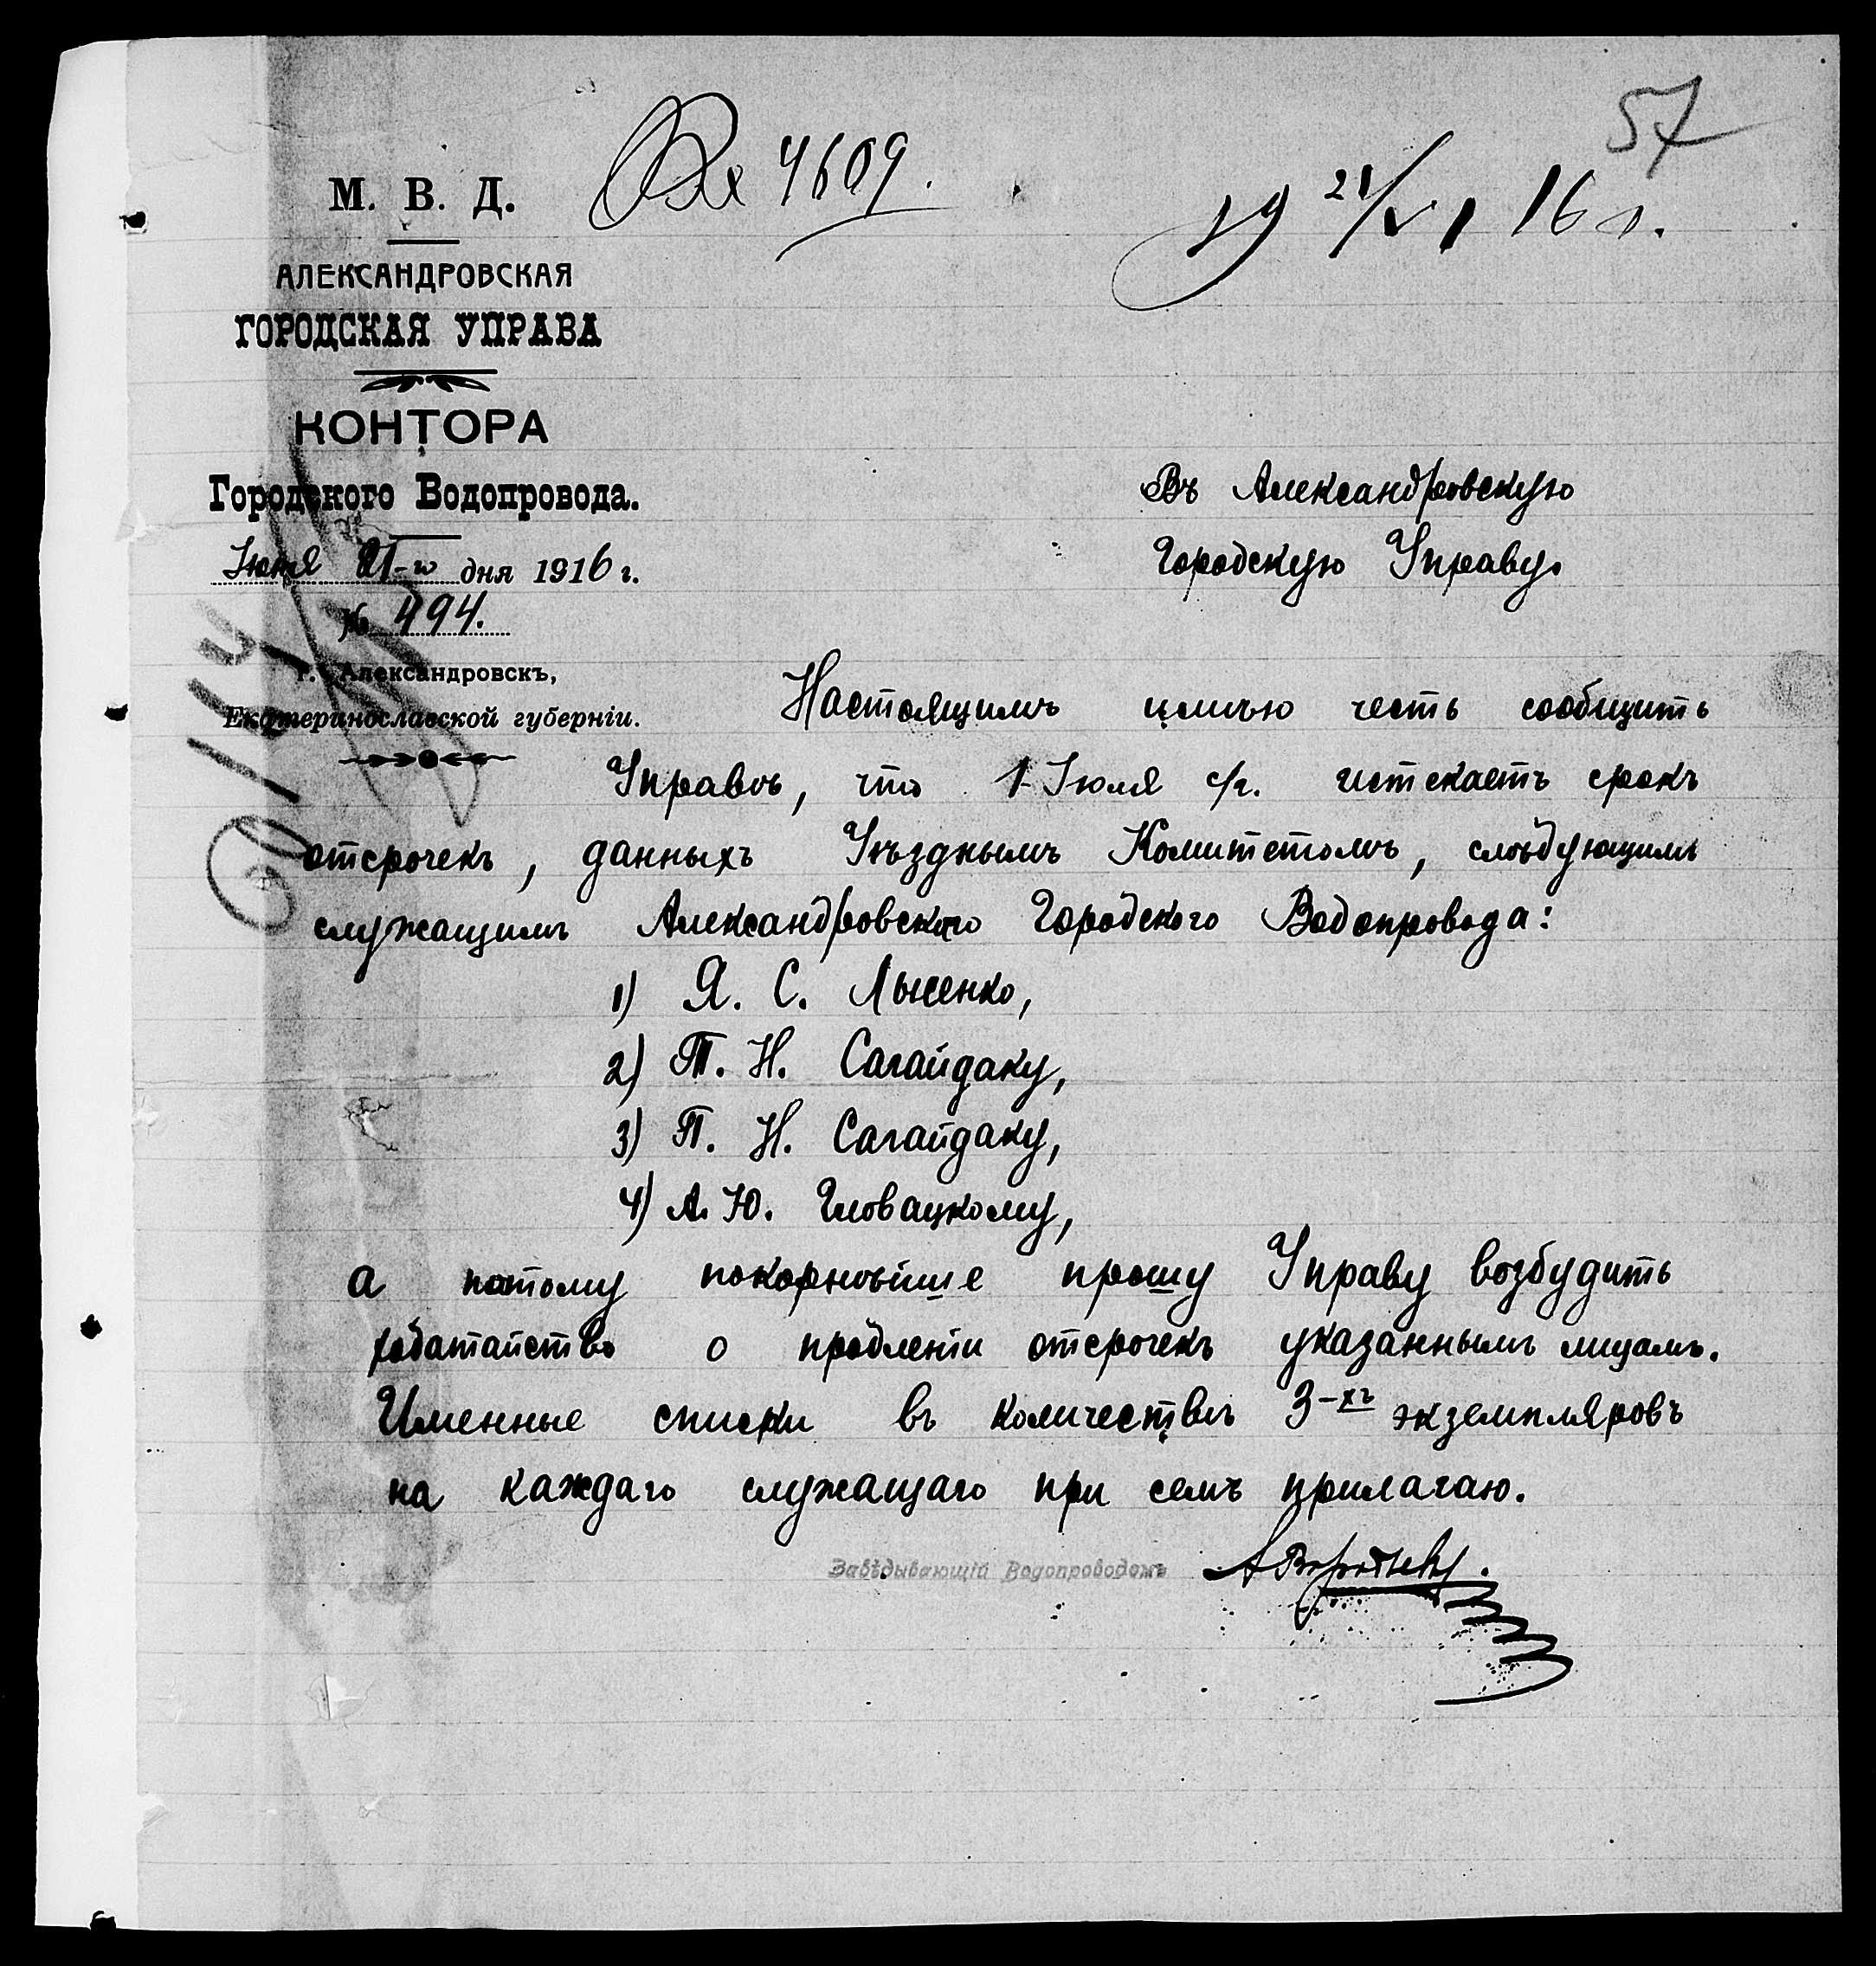 57
Вх 4609.
19 21/VI 16 г.
М. В. Д.
АЛЕКСАНДРОВСКАЯ
ГОРОДСКАЯ УПРАВА
КОНТОРА
Городского Водопровода.
Іюня 21-го дня 1916 г.
№ 494.
г. Александровскъ,
Екатеринославской губерніи.
Въ Александровскую
Городскую Управу.
Настоящимъ имѣю честь сообщить
Управѣ, что 1 Іюля с/г. истекаетъ срокъ
отсрочекъ, данныхъ Уѣзднымъ Комитетомъ, слѣдующимъ
служащимъ Александровского Городского Водопровода:
1) Я. С. Лысенко,
2) Т. Н. Сагайдаку,
3) П. Н. Сагайдаку,
4) А. Ю. Гловацкому,
а потому покорнѣйше прошу Управу возбудить
ходатайство о продленіи отсрочекъ указаннымъ лицамъ.
Именные списки въ количествѣ 3-хъ экземпляровъ
на каждаго служащаго при семъ прилагаю.
Завѣдывающій Водопроводомъ